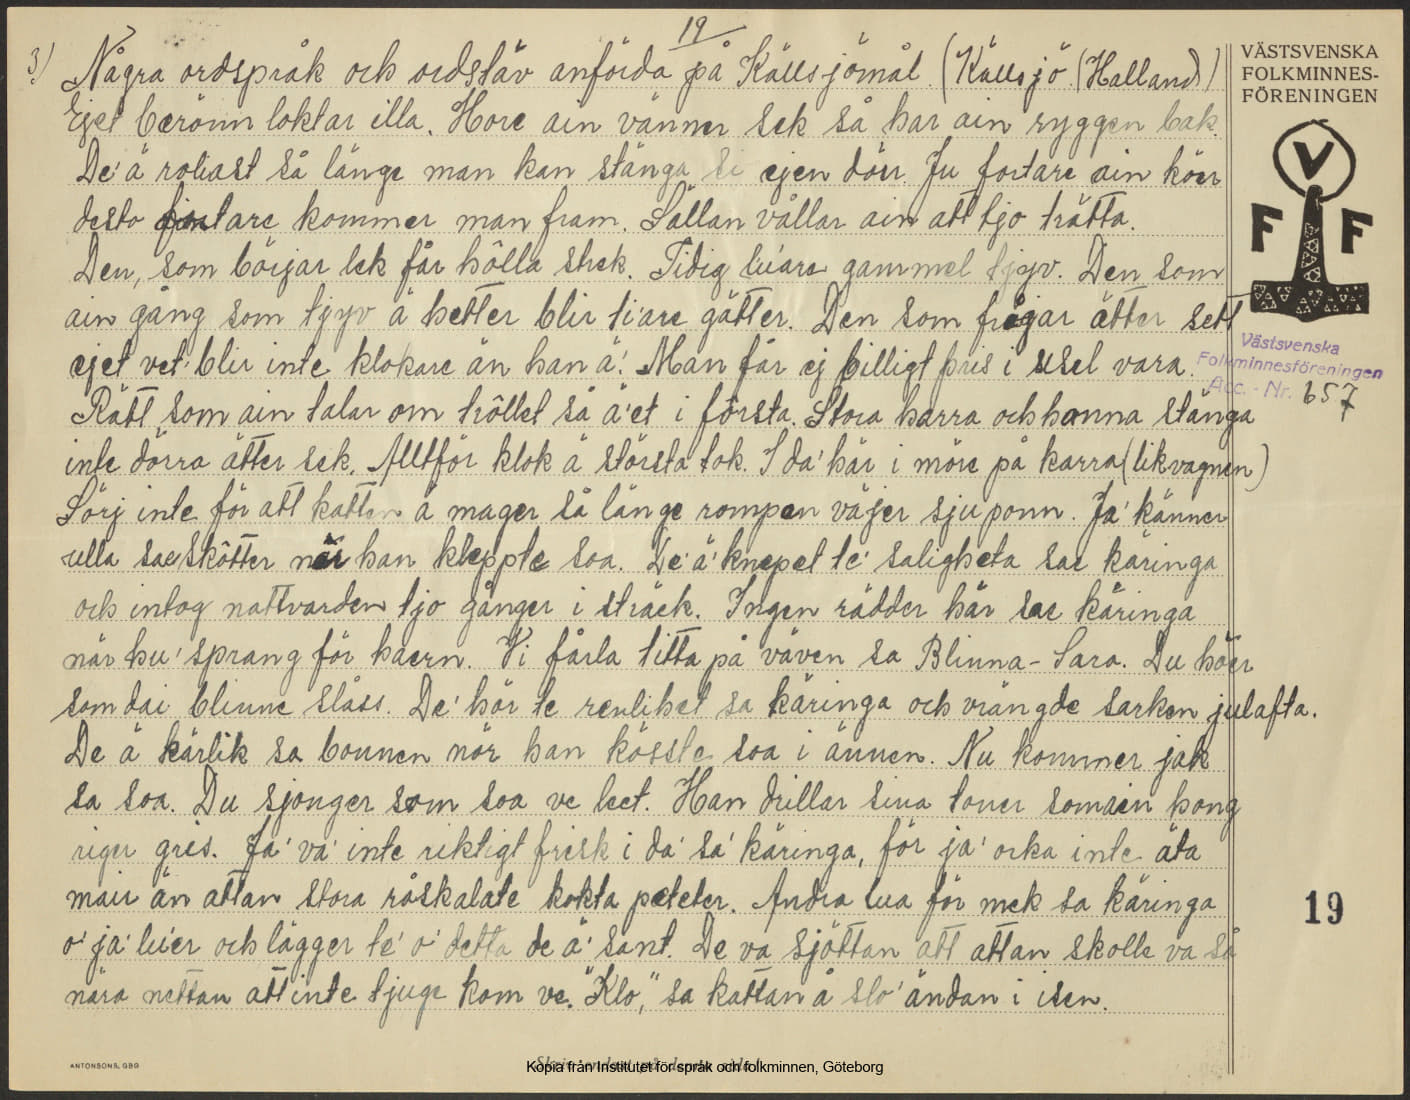 19
3) Några ordspråk och ordstäv anförda på Källsjömål. (Källsjö (Halland)
Ejet berömm loktar illa. Hore ain vänner sek så har ain ryggen bak.
De' ä roliast så länge man kan stänga si ejen dörr. Ju fortare ain köer
desto fortare kommer man fram. Sällan vållar ain att tjo trätta.
Den, som börjar lek får hôlla strek. Tidig luare gammel tjyv. Den som
ain gång som tjyv ä hetter blir ti'are gätter. Den som frågar ätter sett
ejet vet' blir inte klokare än han ä'. Man får ej billigt pris i usel vara.
Rätt som ain talar om trôllet så ä'et i fôrsta. Stora harra och honna stänga
inte dörra ätter sek. Alltför klok ä största tok. I da' här i möre på karra (likvagnen)
Sörj inte för att katten ä mager så länge rompen väjer sju ponn. Ja' känner
ulla sae skôtter när han kleppte soa. De' ä' knepet te' saligheta sae käringa
och intog nattvarden tjo gånger i sträck. Ingen rädder här sae käringa
när hu' sprang för haern. Vi fårla titta på väven sa Blinna-Sara. Du höer
som dai blinne slåss. De' hör te renlihet sa käringa och vrängde sarken julafta.
De ä kärlik sa bonnen nör han kösste soa i ännen. Nu kommer jak
sa soa. Du sjonger som soa ve leet. Han drillar sina toner somain hong
riger gris. Ja' va' inte riktigt fresk i da' sa' käringa, för ja' orka inte äta
mair än attan stora råskalate kokta peteter. Andra lua för mek sa käringa
o' ja' lu'er och lägger te' o' detta de ä' sant. De va sjöttan att attan skolle va så
nära nettan att inte tjuge kom ve. "Klo", sa kattan å slo' ändan i isen.
VÄSTSVENSKA
FOLKMINNES-
FÖRENINGEN
V
F F
Västsvenska
Folkminnesföreningen
Acc.-Nr. 657
19
ANTONSONS, GBG
Kopia från Institutet för språk och folkminnen, Göteborg